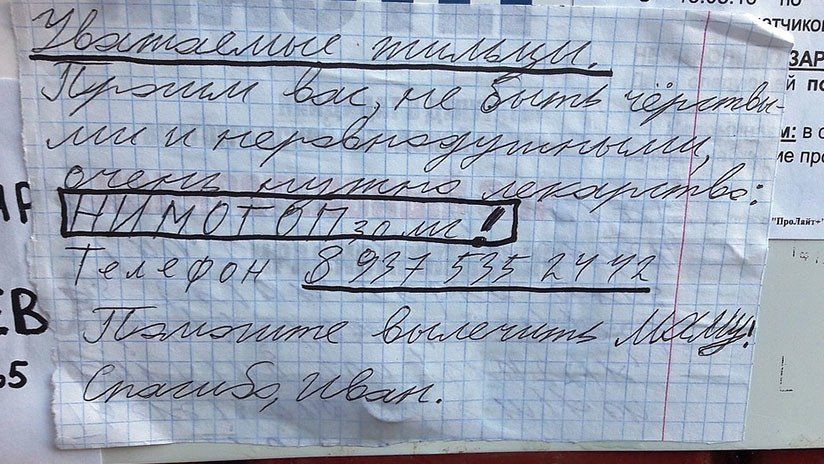 Уважаемые жильцы.
Просим вас, не быть чёрствы-
ми и неравнодушными,
очень нужно лекарство:
НИМОТОП 30 мг!
Телефон 8 937 535 24 42
Помогите вылечить маму!
Спасибо, Иван.
по
ЗАР
й по
м: в с
ие про
"ПроЛайт+"
ЕВ